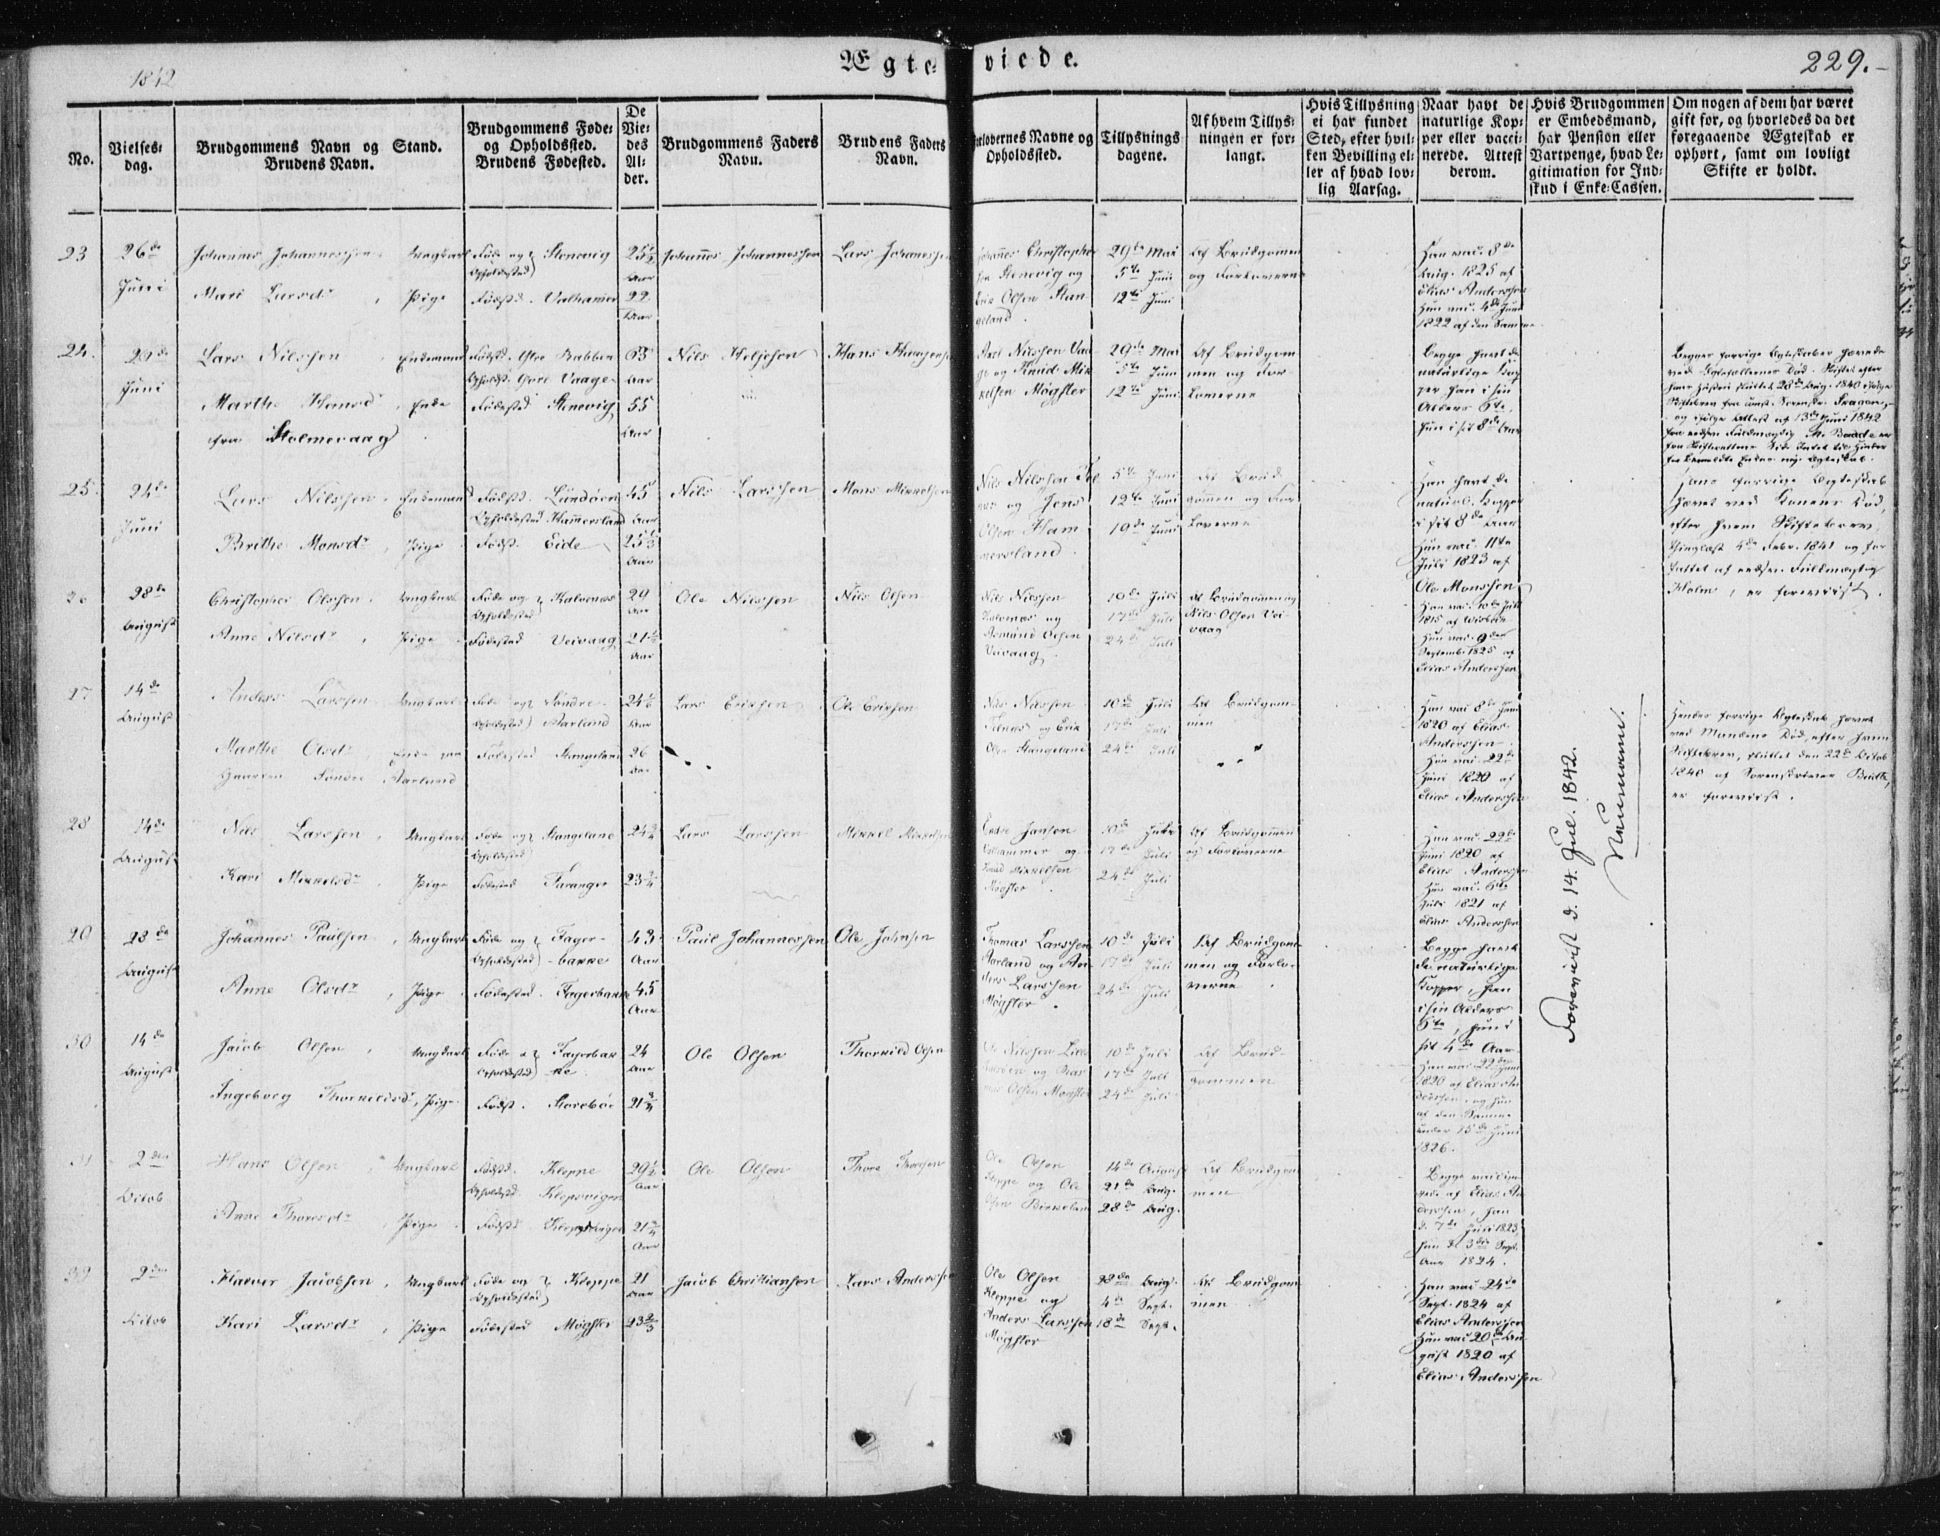 1842
Ægteviede.
229.
No.
Vielsesdag.
Brudgommens Navn og Stand.
Brudens Navn.
Brudgommens Fødeog
Opholdssted.
Brudens Fødested.
De
Viedes
Alder.
Brudgommens Faders
Navn.
Brudens Faders
Navn.
Forlovernes Navne og
Opholdssted.
Tillysningsdagene.
Af hvem Tillysningen
er forlangt.
Hvis Tillysning
ei har fundet
Sted, efter hvilken
Bevilling eller
af hvad lovlig
Aarsag.
Naar havt de
naturlige Kopper
eller vaccinerede.
Attest
derom.
Hvis Brudgommen
er Embedsmand,
har Pension eller
Vartpenge, hvad Legitimation
for Indskud
i Enke-Cassen.
Om nogen af dem har været
gift før, og hvorledes da det
foregaaende Ægteskab er
ophørt, samt om lovligt
Skifte er holdt.
23
26de
Juni
Johannes Johannessen, Ungkarl
Mari Larsdr, Pige
Føde og Opholdssted Stenevig
Fødest. Valhamer
25½ Aar
22 Aar
Johannes Johannessen
Lars Johannessen
Johannes Christophersen Stenevig og
Erik Olsen Stangeland.
29de Mai
5te Juni
12te Juni
Af Brudgommen
og Forloverne
Han vac. 8de
Aug. 1825 af
Elias Anderssen
Hun vac. 4de Juni
1822 af den Samme
24.
Juni
Lars Nilssen, Enkemand
Marthe Hansdr, Enke
fra Holmevaag
Opholdst. Vaage
Fødested Stenevig
63 Aar
55 Aar
Nils Heljesen
Nilssen Vaage og Knud Mikkelsen Møgster
29de Mai
5te Juni
12te Juni
Af Brudgommen og Forloverne
Begge havt de
naturlige Kopper
han i sin
Alders 6te,
hun i sit 8de Aar
25
24de
Juni
Lars Nilssen, Enkemand
Brithe Monsdr, Pige
Fødst. Lundøen
Opholdssted Hammersland
Fødst. Eide
45 Aar
25⅓ Aar
Nils Larssen
Mons Mikkelsen
Nils Nilssen
og Jens
Olsen Hammersland.
5te Juni
12te Juni
19de Juni
Af Brudgommen og Forloverne
Han havt de
naturl. Kopper
i sit 8de Aar
Hun vac. 11te
Juli 1823 af
Ole Monssen
Hans forrige Ægteskab
hævet ved Konens Død,
efter hvem Skiftebrev,
tinglæst 4de Febr. 1841 og forfattet
af
Holm, er foreviist.
28de
August
Christopher Olssen, Ungkarl
Anne Nilsdr, Pige
Føde og Opholdssted Kalvenæs
Fødested Veivaag
29 Aar
21½ Aar
Ole Nilssen
Nils Olsen
Nils Nilssen
Kalvenæs og
Asmund Olsen
Veivaag.
10de Juli
17de Juli
24de Juli
Af Brudgommen og
Nils Olsen Veivaag
Septemb. 1825 af
Elias Anderssen
27
14de
August
Anders Larssen, Ungkarl
Marthe Olsdr, Enke
Søndre Aarland
Føde og Opholdssted Søndre Aarland
Fødested Stangeland
24⅙ Aar
26 Aar
Lars Erikssen
Ole Erikssen
Nils Nilssen
og Erik
Olsen Stangeland
10de Juli
17de Juli
24de Juli
Af Brudgommen
Han vac 8de Juni
1820 af Elias
Anderssen.
Hun vac. 22de
Juni 1820 af
Elias Anderssen
Hendes forrige Ægteskab hævet
ved Mandens Død, efter hvem
Skiftebrev, sluttet den 22de Octob
1840 af Sorenskriver Budtz,
er foreviist.
28
14de
August
Nils Larssen, Ungkarl
Kari Mikkelsdr, Pige
Føde og Opholdssted Stangeland
Fødested Taranger
24¾
23¾
Lars Larssen
Mikkel Mikkelsen
Jansen
og
Knud Mikkelsen
Møgster.
10de Juli
17de Juli
24de Juli
Af Brudgommen
og Forloverne
Han vac. 22de
Juni 1820 af
Elias Anderssen
Hun vac. 6te
Juli 1821 af
Elias Anderssen
28de
August
Johannes Paulsen, Ungkarl
Anne Olsdr, Pige
Føde og Opholdssted Fagerbakke
Fødested Fagerbakke
43 Aar
45 Aar
Paul Johannessen
Ole Johnsen
Thomas Larssen
Aarland og Anders Larssen
Møgster.
10de Juli
17de Juli
24de Juli
Af Brudgommen og Forloverne
Begge havt
de naturlige
Kopper, han
i sin Alders
6te, hun i
sit 4de Aar
30
14de
August
Jacob Olsen, Ungkarl
Ingeborg Thorkildsdr, Pige
Føde og Opholdssted Fagerbakke
Fødst. Storebøe
24 Aar
21¾
Ole Olsen
Thorkild Olsen
Olsen Møgster
10de Juli
17de Juli
24de Juli
Af Brudgommen
Han vac. 22de Juni
1820 af Elias Anderssen, og hun
af den Samme
under 15de Juni
1826.
31
2den
Octob
Hans Olsen, Ungkarl
Anne Thoresdr, Pige
Fødst. Kleppe
Opholdst. Klepsvigen
Fødst. Klepsvigen
29½ Aar
21¾ Aar
Ole Olsen
Thore Thorsen
Ole Olsen
Kleppe og Ole
Olsen Birkeland
14de August
21de Aug.
28de Aug.
Af Brudgommen
Begge vaccinerede
af Elias Anderssen, han
d. 7de Juli 1823,
hun d. 3die Sept.
Aar 1824.
2den
Octob
Jacobsen, Ungkarl
Kari Larsdr, Pige
Føde og Opholdssted Kleppe
Fødested Møgster
21 Aar
23⅔
Jacob Christiansen
Lars Anderssen
Ole Olsen
Kleppe og
Anders Larssen
Møgster
28de Aug.
4de Sept.
18de Sept.
Af Brudgommen
Han vac 24de
Sept. 1824 af
Elias Anderssen
Hun vac 20de August
1820 af
Elias Anderssen
Foreviist d. 14. Jul. 1842.
Neumann.